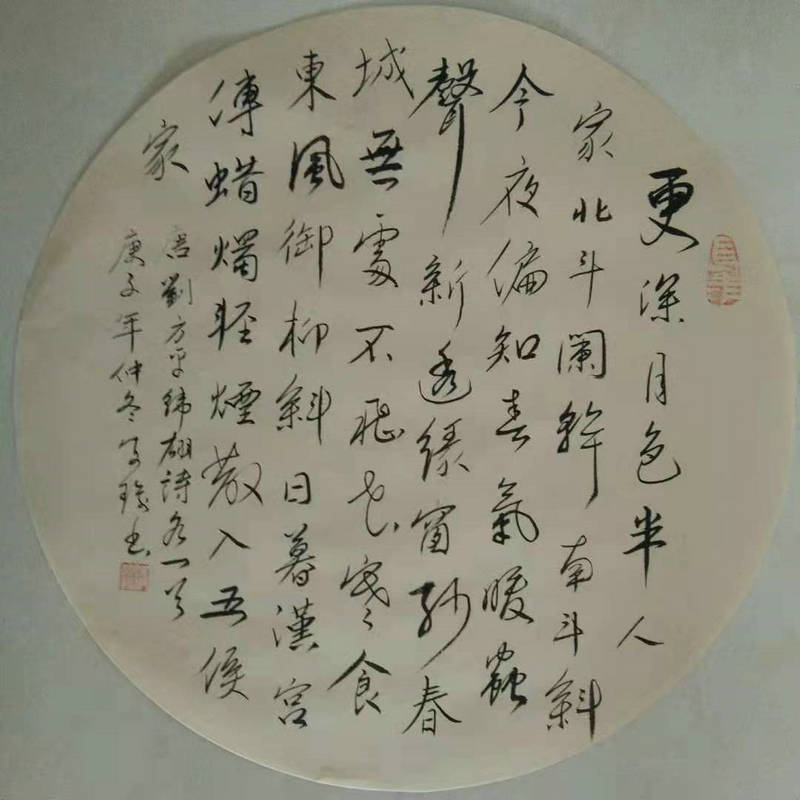 更深月色半人
家北斗闌幹南斗斜
今夜偏知春氣暖蟲
聲新透綠窗紗春
城無處不飛花寒食
東風御柳斜日暮漢宮
傳蜡燭輕煙散入五侯
家
唐劉方平韓翃詩各一首
庚子年仲冬書